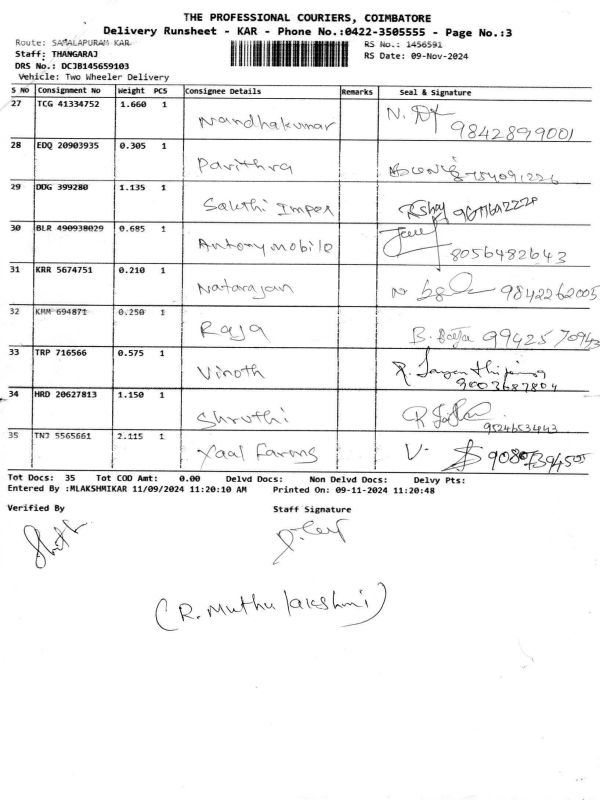 THE PROFESSIONAL COURIERS, COIMBATORE
Delivery Runsheet - KAR - Phone No.:0422-3505555 - Page No.:3
Route: SAMALAPURAM KAR
RS No.: 1456591
Staff: THANGARAJ
RS Date: 09-Nov-2024
DRS No.: DCJB145659103
Vehicle: Two Wheeler Delivery
S No Consignment No Weight PCS Consignee Details Remarks Seal & Signature
27 TCG 41334752 1.660 1 Nandhakumar N. 9842899001
28 EDQ 20903935 0.305 1 Pavithra
29 DDG 399280 1.135 1 Sakthi Impex
30 BLR 490938029 0.685 1 Antony mobile 8056482643
31 KRR 5674751 0.210 1 Natarajan 9842262005
32 KMM 694871 0.250 1 Raja B. Raja 9942570943
33 TRP 716566 0.575 1 Vinoth 9003687804
34 HRD 20627813 1.150 1 Shruthi 9524653443
35 TNJ 5565661 2.115 1 Yaal Farms V.
Tot Docs: 35 Tot COD Amt: 0.00 Delvd Docs: Non Delvd Docs: Delvy Pts:
Entered By :MLAKSHMIKAR 11/09/2024 11:20:10 AM Printed On: 09-11-2024 11:20:48
Verified By Staff Signature
(R. Muthu lakshmi)